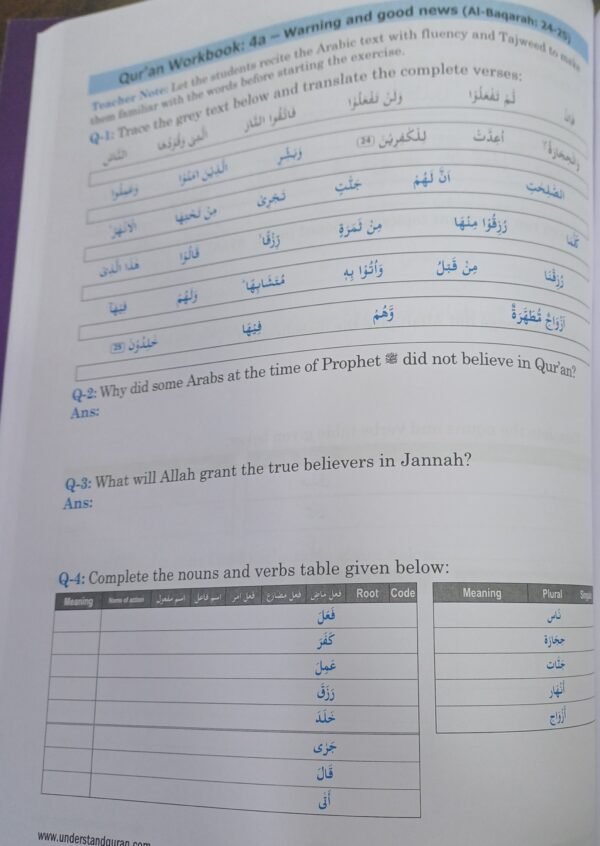 Qur'an Workbook: 4a – Warning and good news (Al-Baqarah: 24-25)
Teacher Note: Let the students recite the Arabic text with fluency and Tajweed to make
them familiar with the words before starting the exercise.
Q-1: Trace the grey text below and translate the complete verses:
فَاِنْ لَّمْ تَفْعَلُوْا وَلَنْ تَفْعَلُوْا فَاتَّقُوا النَّارَ الَّتِىْ وَقُوْدُهَا النَّاسُ
وَالْحِجَارَةُ ۚ اُعِدَّتْ لِلْكٰفِرِيْنَ (24) وَبَشِّرِ الَّذِيْنَ اٰمَنُوْا وَعَمِلُوا
الصّٰلِحٰتِ اَنَّ لَهُمْ جَنّٰتٍ تَجْرِىْ مِنْ تَحْتِهَا الْاَنْهٰرُ ۗ
كُلَّمَا رُزِقُوْا مِنْهَا مِنْ ثَمَرَةٍ رِّزْقًا ۙ قَالُوْا هٰذَا الَّذِىْ
رُزِقْنَا مِنْ قَبْلُ وَاُتُوْا بِهٖ مُتَشَابِهًا ۗ وَلَهُمْ فِيْهَآ
اَزْوَاجٌ مُّطَهَّرَةٌ وَّهُمْ فِيْهَا خٰلِدُوْنَ (25)
Q-2: Why did some Arabs at the time of Prophet ﷺ did not believe in Qur'an?
Ans:
Q-3: What will Allah grant the true believers in Jannah?
Ans:
Q-4: Complete the nouns and verbs table given below:
Meaning Name of action اسم مفعول اسم فاعل فعل امر فعل مضارع فعل ماضٍ Root Code
فَعَلَ
كَفَرَ
عَمِلَ
رَزَقَ
خَلَدَ
جَرٰى
قَالَ
أَتٰى
Meaning Plural
نَاس
حِجَارَة
جَنَّات
أَنْهَار
أَزْوَاج
www.understandquran.com